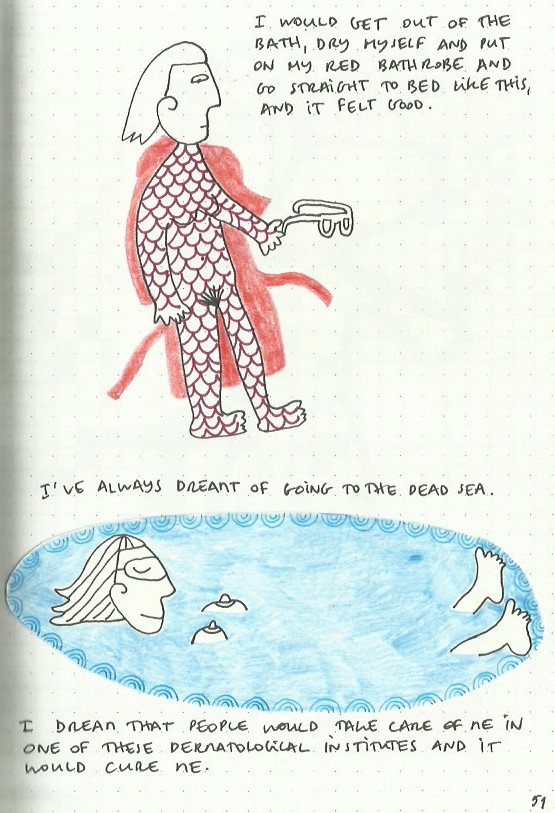 I WOULD GET OUT OF THE
BATH, DRY MYSELF AND PUT
ON MY RED BATHROBE AND
GO STRAIGHT TO BED LIKE THIS,
AND IT FELT GOOD.
I'VE ALWAYS DREAMT OF GOING TO THE DEAD SEA.
I DREAM THAT PEOPLE WOULD TAKE CARE OF ME IN
ONE OF THESE DERMATOLOGICAL INSTITUTES AND IT
WOULD CURE ME.
51